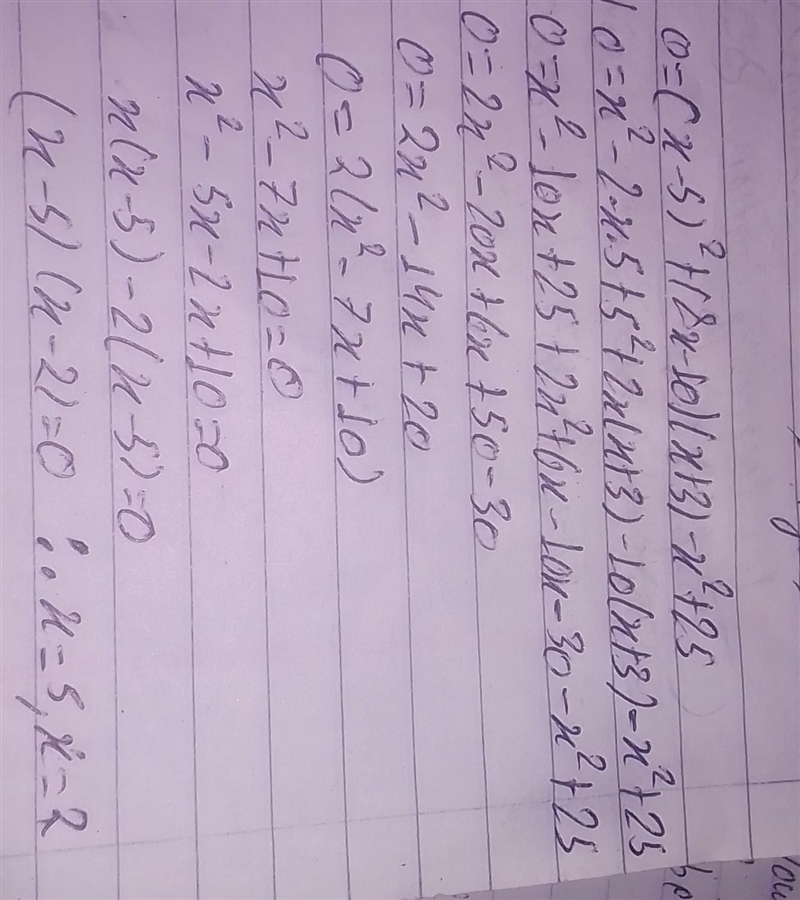 0=(x-5)²+(2x-10)(x+3)-x²+25
0=x²-2·x·5+5²+2x(x+3)-10(x+3)-x²+25
0=x²-10x+25+2x²+6x-10x-30-x²+25
0=2x²-20x+6x+50-30
0=2x²-14x+20
0=2(x²-7x+10)
x²-7x+10=0
x²-5x-2x+10=0
x(x-5)-2(x-5)=0
(x-5)(x-2)=0 ∴ x=5, x=2